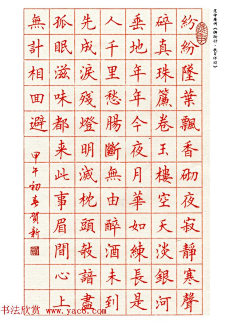 范仲淹詞《御街行·秋日懷舊》
紛紛墮葉飄香砌夜寂靜寒聲
碎真珠簾卷玉樓空天淡銀河
垂地年年今夜月華如練長是
人千里愁腸斷無由醉酒未到
先成淚殘燈明滅枕頭敧諳盡
孤眠滋味都來此事眉間心上
無計相回避
甲午初春賀新
书法欣赏 www.yac8.com